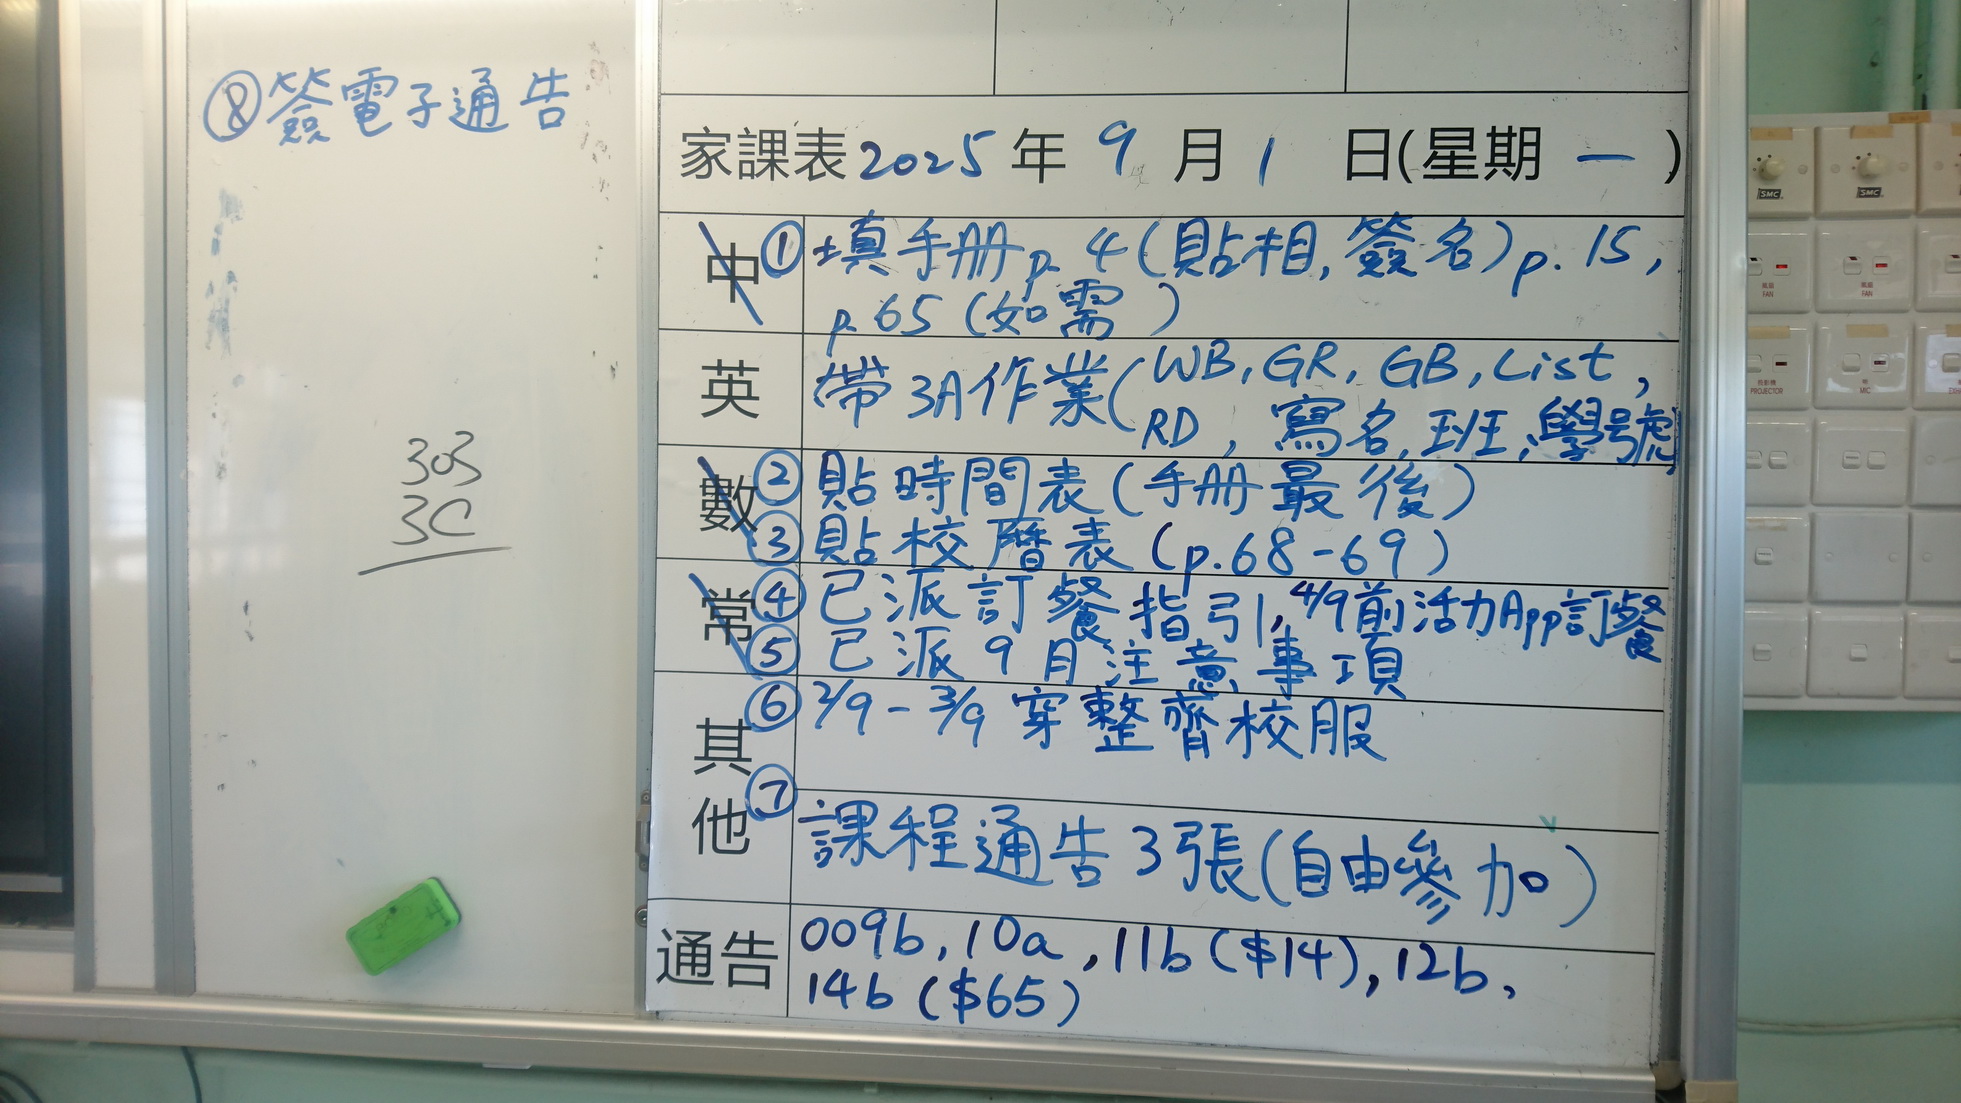 ⑧簽電子通告
303
3C
家課表2025年9月1日(星期一)
中 ①填手冊p.4(貼相,簽名)p.15,
p.65(如需)
英 帶3A作業(WB, GR, GB, List,
RD, 寫名,班,學號)
數 ②貼時間表(手冊最後)
③貼校曆表(p.68-69)
常 ④已派訂餐指引,4/9前活力App訂餐
⑤已派9月注意事項
其他 ⑥2/9-3/9穿整齊校服
⑦課程通告3張(自由參加)
通告 009b, 10a, 11b($14), 12b,
14b($65)
SMC
SMC
風扇
FAN
風扇
FAN
PROJECTOR
MIC